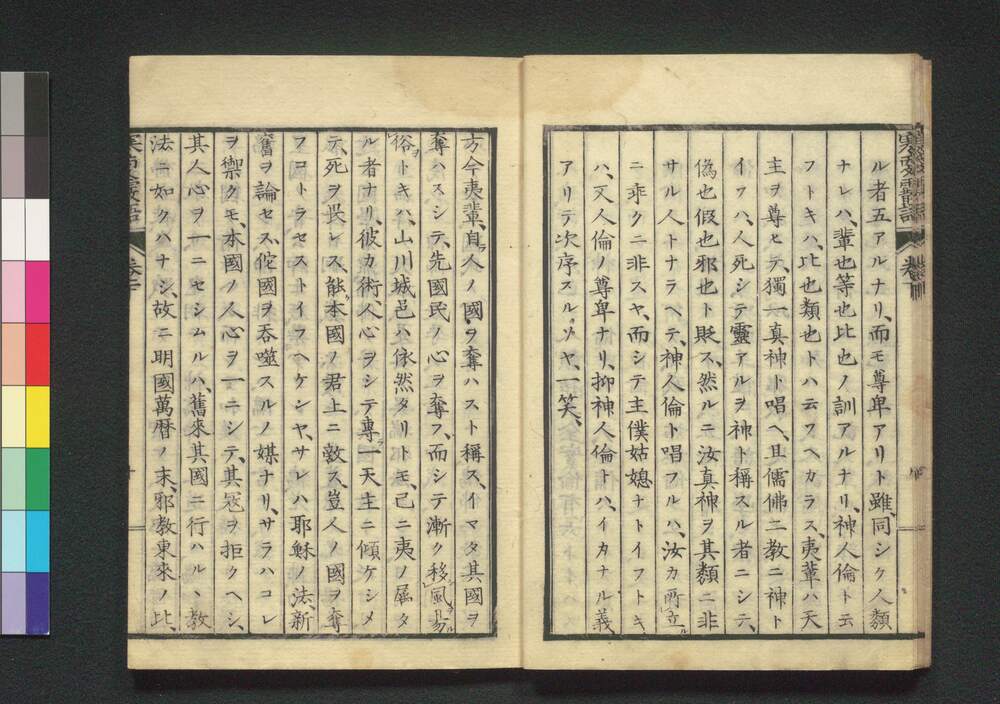 ル者五アルナリ、而モ尊卑アリト雖、同シク人類
ナレハ、輩也等也比也ノ訓アルナリ、神人倫ト云
フトキハ、比也類也トハ云フヘカラス、夷輩ハ天
主ヲ尊ヒテ、獨一真神ト唱ヘ、且儒佛二教ニ神ト
イフハ、人死シテ靈アルヲ神ト稱スル者ニシテ、
偽也假也邪也ト貶ス、然ルニ汝真神ヲ其類ニ非
サル人トナラヘテ、神人倫ト唱フルハ、汝カ所立
ニ乖クニ非スヤ、而シテ主僕姑媳ナトイフトキ
ハ、又人倫ノ尊卑ナリ、抑神人倫トハ、イカナル義
アリテ次序スルソヤ、一笑、
方今夷輩、自ラ人ノ國ヲ奪ハスト稱ス、イマタ其國ヲ
奪ハスシテ、先國民ノ心ヲ奪フ、而シテ漸ク移風易
俗トキハ、山川城邑ハ依然タリトモ、已ニ夷ノ屬タ
ル者ナリ、彼カ術、人心ヲシテ專ラ一天主ニ傾ケシメ
テ、死ヲ畏レス、能本國ノ君上ニ敵ス、豈人ノ國ヲ奪
フコトラセストイフヘケンヤ、サレハ耶穌ノ法、新
舊ヲ論セス、佗國ヲ吞噬スルノ媒ナリ、サラハコレ
ヲ禦クモ、本國ノ人心ヲ一ニシテ、其冦ヲ拒クヘシ、
其人心ヲ一ニセシムルハ、舊來其國ニ行ハルヽ教
法ニ如クハナシ、故ニ明國萬暦ノ末、邪教東來ノ比、